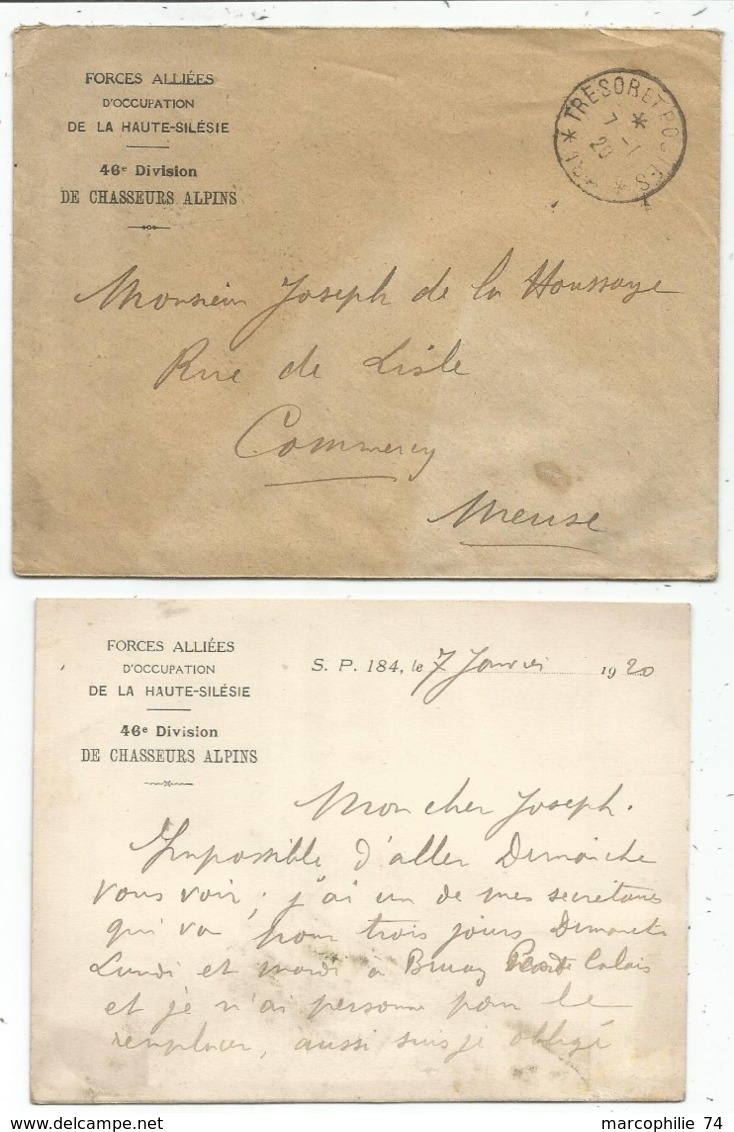 FORCES ALLIÉES
D'OCCUPATION
DE LA HAUTE-SILÉSIE
46e Division
DE CHASSEURS ALPINS
* TRESOR ET POSTES *
7 -1
20
Monsieur Joseph de la Houssaye
Rue de Lisle
Commercy
Meuse
FORCES ALLIÉES
D'OCCUPATION
DE LA HAUTE-SILÉSIE
46e Division
DE CHASSEURS ALPINS
S. P. 184, le 7 Janvier 1920
Mon cher Joseph.
Impossible d'aller Dimanche
vous voir ; j'ai un de mes secrétaires
qui va pour trois jours Dimanche
Lundi et mardi à Bruay Calais
et je n'ai personne pour le
remplacer, aussi suis je obligé
marcophilie 74